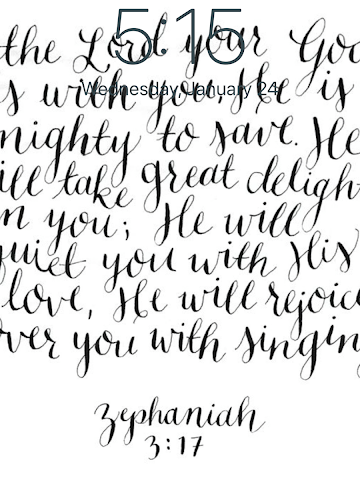 5:15
the Lord your Go
Wednesday, January 24
s with you, He is
mighty to save. He
ill take great deligh
n you; He will
quiet you with His
love, He will rejoice
ver you with singing
Zephaniah
3:17